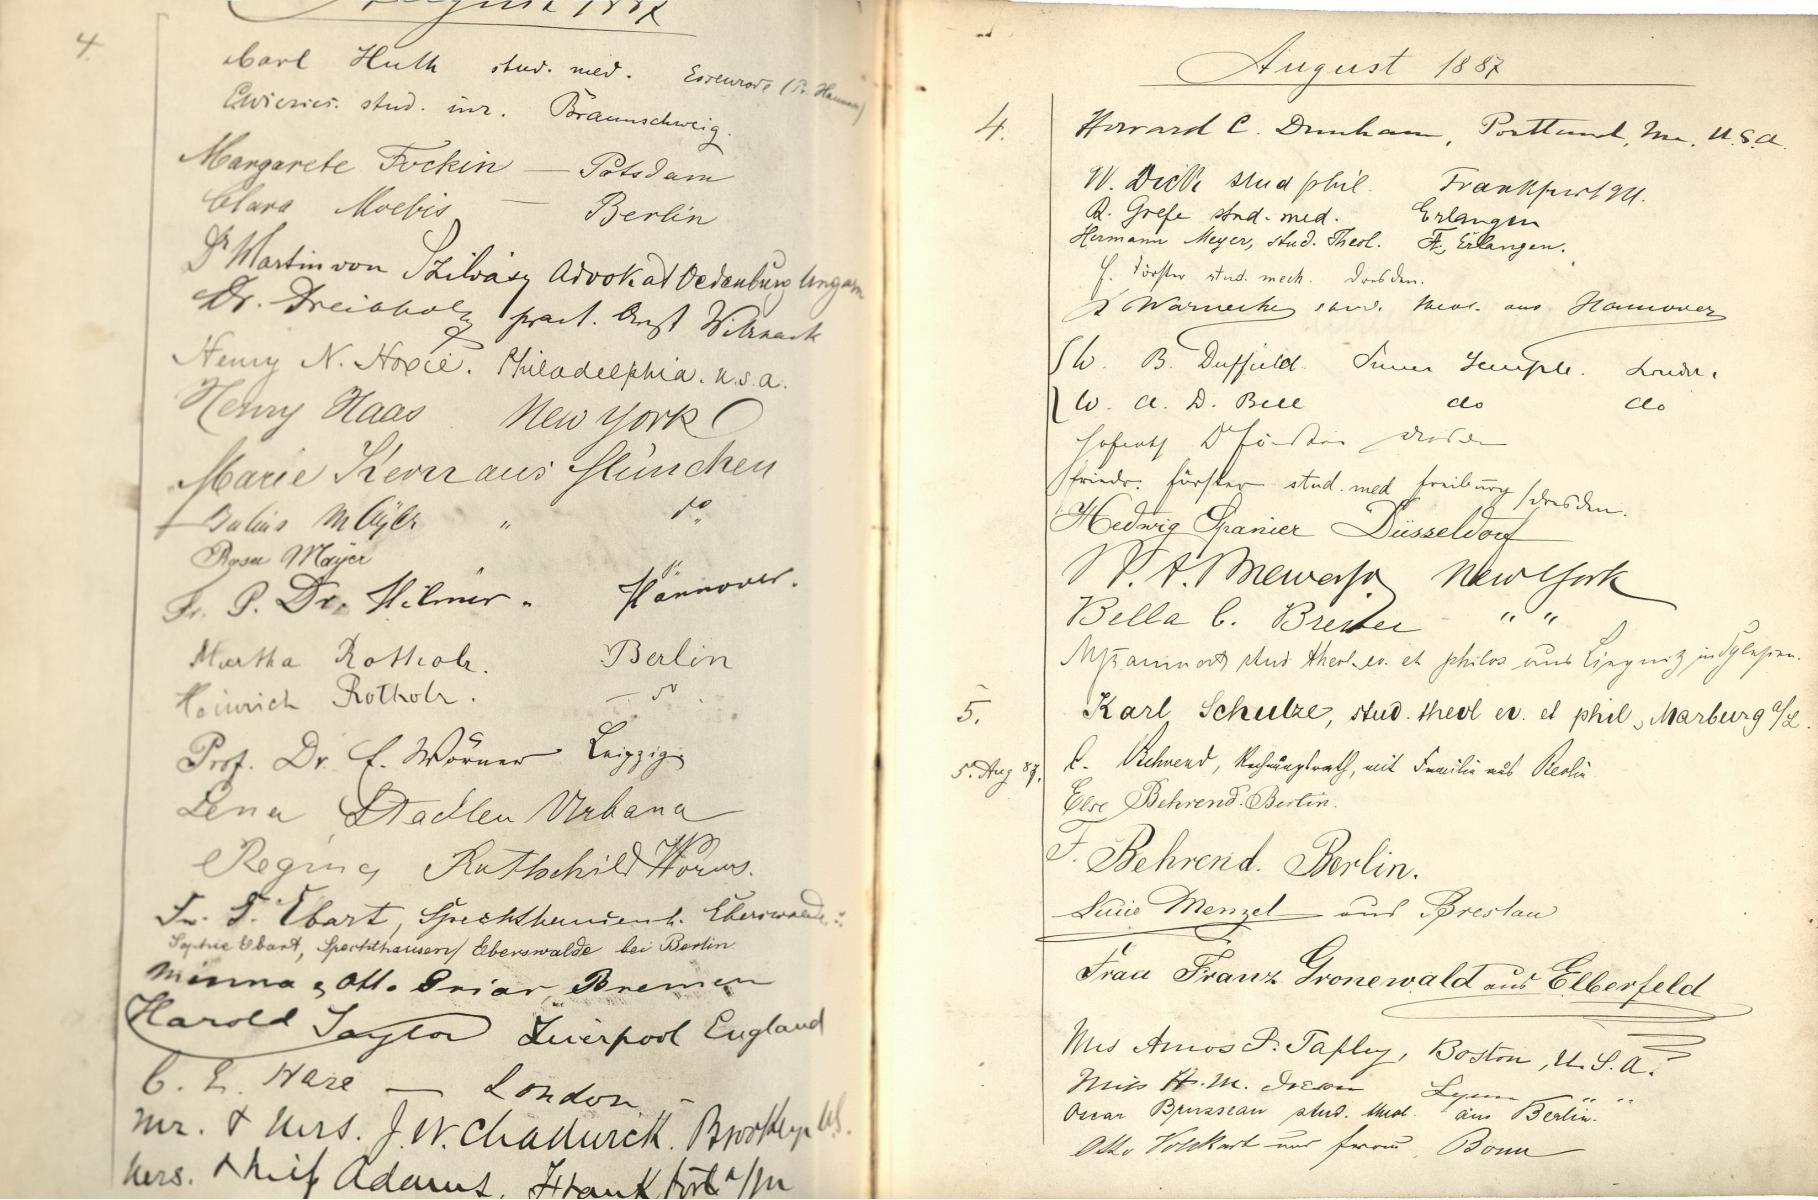 August 1887
4.
Carl Huth stud. med.
stud. iur. Braunschweig.
Margarete Fockin — Potsdam
Clara Moebis — Berlin
Dr Martin von Szilvásy Advokat Oedenburg Ungarn
Dr. Dreibholz pract. Arzt
Henry N. Hoxie. Philadelphia. U.S.A.
Henry Haas New York
Marie Kerner aus München
Julius Mayer " do
Rosa Mayer
Fr. P. Dr. Hilmer. Hannover.
Martha Rotholz. Berlin
Heinrich Rotholz. — do
Prof. Dr. E. Wörner Leipzig
Lena Stadlen Urbana
Regina Rothschild Worms.
Fr. F. Ebart, Spechthausen b. Eberswalde
Sophie Ebart, Spechthausen/ Eberswalde bei Berlin
Minna & Otto Briar, Bremen
Harold Taylor Liverpool England
C. E. Hare — London
Mr. & Mrs. J. W. Chadwick. Brooklyn U.S.
Mrs. & Miss Adams, Frankfort a/m
August 1887
4. Howard C. Dunham, Portland, Me. U.S.A.
W. Dick stud phil. Frankfurt a/M.
R. Grefe stud. med. Erlangen
Hermann Meyer, stud. Theol. Erlangen.
E. Förster stud. mech. Dresden.
Warnecke stud. theol. aus Hannover
W. B. Duffield. Inner Temple. London
W. A. D. Bell do do
Hofrath Dr Förster Dresden
Friedr. Förster stud. med Freiburg/Dresden.
Hedwig Spanier Düsseldorf
New York
Bella C. Brewer " "
stud theol. ev. et philos aus Liegnitz in Schlesien.
5. Karl Schulze, stud. theol ev. et phil, Marburg a/L.
5. Aug 87. C. Behrend, Rechnungsrath, mit Familie aus Berlin
Else Behrend. Berlin.
F. Behrend. Berlin.
Lucie Menzel aus Breslau
Frau Franz Gronewald aus Elberfeld
Mrs Amos P. Tapley, Boston, U.S.A.
Miss H. M. Lynn " "
Oscar Brusseau stud. theol. aus Berlin.
Otto Volkart und Frau, Bonn